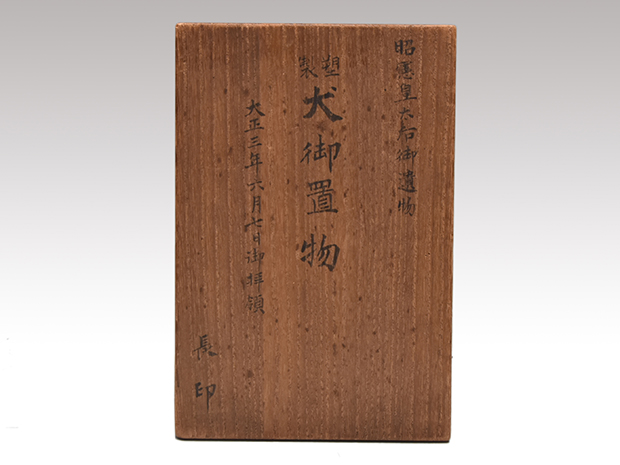 昭憲皇太后御遺物
塑製
犬御置物
大正三年六月七日御拝領
長印